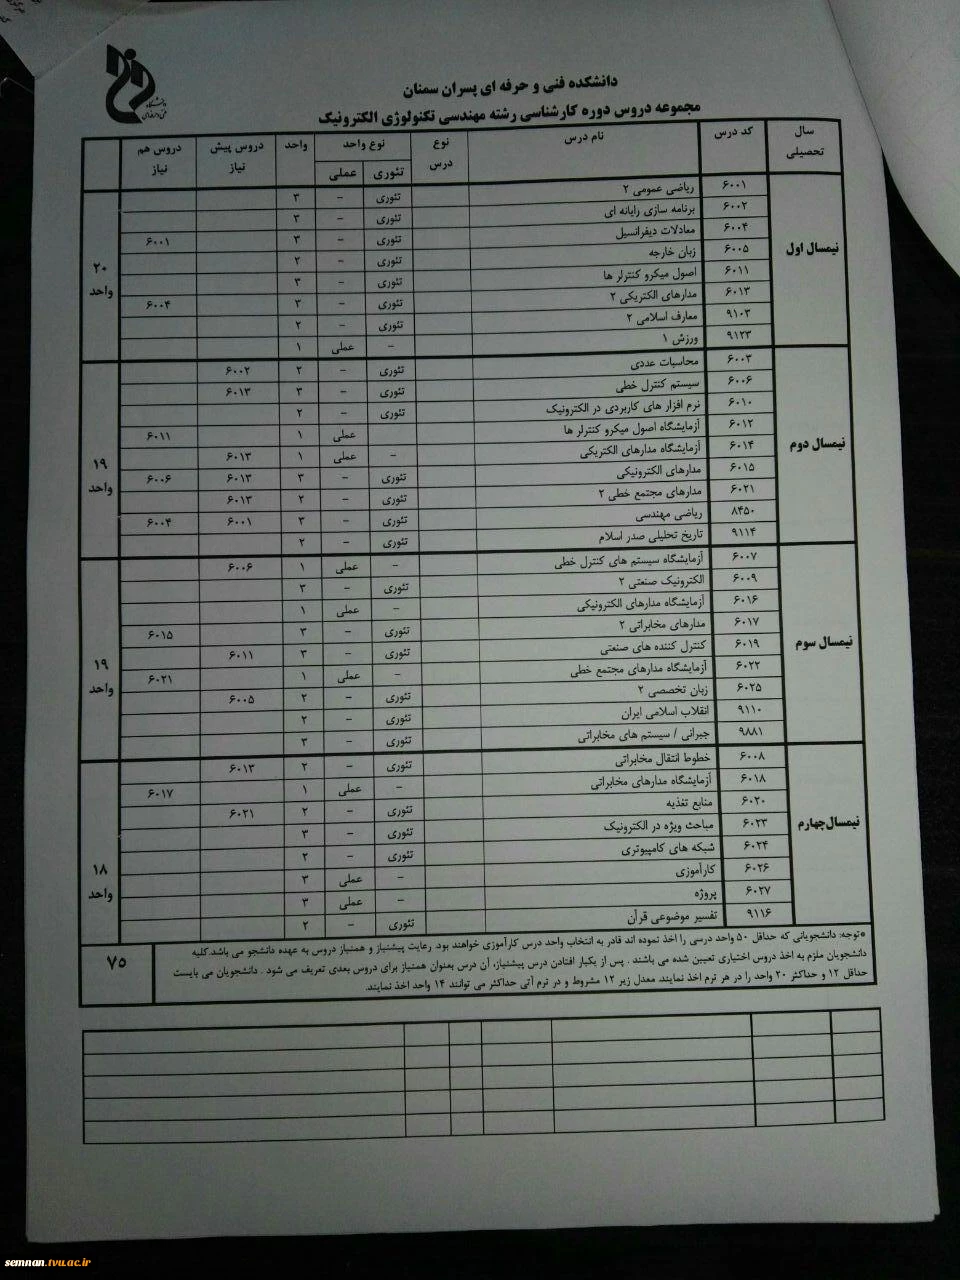 دانشگاه
فنی و حرفه‌ای
دانشکده فنی و حرفه ای پسران سمنان
مجموعه دروس دوره کارشناسی رشته مهندسی تکنولوژی الکترونیک
سال تحصیلی کد درس نام درس نوع درس نوع واحد واحد دروس پیش نیاز دروس هم نیاز
تئوری عملی
نیمسال اول
۶۰۰۱ ریاضی عمومی ۲ تئوری - ۳
۶۰۰۲ برنامه سازی رایانه ای تئوری - ۳
۶۰۰۴ معادلات دیفرانسیل تئوری - ۳ ۶۰۰۱
۶۰۰۵ زبان خارجه تئوری - ۲
۶۰۱۱ اصول میکرو کنترلر ها تئوری - ۳
۶۰۱۳ مدارهای الکتریکی ۲ تئوری - ۳ ۶۰۰۴
۹۱۰۳ معارف اسلامی ۲ تئوری - ۲
۹۱۲۳ ورزش ۱ - عملی ۱
۲۰ واحد
نیمسال دوم
۶۰۰۳ محاسبات عددی تئوری - ۲ ۶۰۰۲
۶۰۰۶ سیستم کنترل خطی تئوری - ۳ ۶۰۱۳
۶۰۱۰ نرم افزار های کاربردی در الکترونیک تئوری - ۲
۶۰۱۲ آزمایشگاه اصول میکرو کنترلر ها عملی ۱ ۶۰۱۱
۶۰۱۴ آزمایشگاه مدارهای الکتریکی - عملی ۱ ۶۰۱۳
۶۰۱۵ مدارهای الکترونیکی تئوری - ۳ ۶۰۱۳ ۶۰۰۶
۶۰۲۱ مدارهای مجتمع خطی ۲ تئوری - ۲ ۶۰۱۳
۸۴۵۰ ریاضی مهندسی تئوری - ۳ ۶۰۰۱ ۶۰۰۴
۹۱۱۴ تاریخ تحلیلی صدر اسلام تئوری - ۲
۱۹ واحد
نیمسال سوم
۶۰۰۷ آزمایشگاه سیستم های کنترل خطی - عملی ۱ ۶۰۰۶
۶۰۰۹ الکترونیک صنعتی ۲ تئوری - ۳
۶۰۱۶ آزمایشگاه مدارهای الکترونیکی - عملی ۱
۶۰۱۷ مدارهای مخابراتی ۲ تئوری - ۳ ۶۰۱۵
۶۰۱۹ کنترل کننده های صنعتی تئوری - ۳ ۶۰۱۱
۶۰۲۲ آزمایشگاه مدارهای مجتمع خطی - عملی ۱ ۶۰۲۱
۶۰۲۵ زبان تخصصی ۲ تئوری - ۲ ۶۰۰۵
۹۱۱۰ انقلاب اسلامی ایران تئوری - ۲
۹۸۸۱ جبرانی / سیستم های مخابراتی تئوری - ۳
۱۹ واحد
نیمسال چهارم
۶۰۰۸ خطوط انتقال مخابراتی تئوری - ۲ ۶۰۱۳
۶۰۱۸ آزمایشگاه مدارهای مخابراتی - عملی ۱ ۶۰۱۷
۶۰۲۰ منابع تغذیه تئوری - ۲ ۶۰۲۱
۶۰۲۳ مباحث ویژه در الکترونیک تئوری - ۳
۶۰۲۴ شبکه های کامپیوتری تئوری - ۲
۶۰۲۶ کارآموزی - عملی ۳
۶۰۲۷ پروژه - عملی ۳
۹۱۱۶ تفسیر موضوعی قرآن تئوری - ۲
۱۸ واحد
*توجه: دانشجویانی که حداقل ۵۰ واحد درسی را اخذ نموده اند قادر به انتخاب واحد درس کارآموزی خواهند بود. رعایت پیشنیاز و همنیاز دروس به عهده دانشجو می باشد.کلیه
دانشجویان ملزم به اخذ دروس اختیاری تعیین شده می باشند . پس از یکبار افتادن درس پیشنیاز، آن درس بعنوان همنیاز برای دروس بعدی تعریف می شود . دانشجویان می بایست
حداقل ۱۲ و حداکثر ۲۰ واحد را در هر ترم اخذ نمایند. معدل زیر ۱۲ مشروط و در ترم آتی حداکثر می توانند ۱۴ واحد اخذ نمایند.
۷۵
semnan.tvu.ac.ir